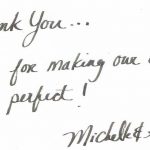 nk You...
for making our
perfect!
Michelle &